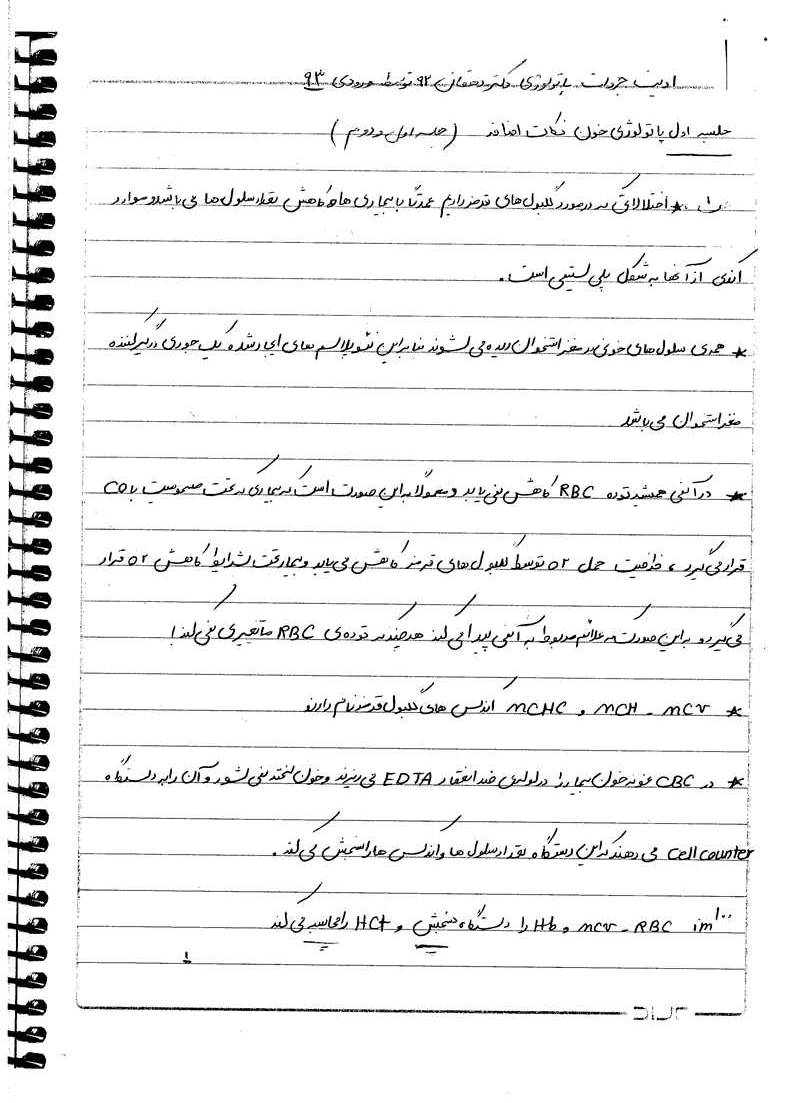 ادیت جزوات پاتولوژی دکتر دهقانی ۹۲ توسط ورودی ۹۳
جلسه اول پاتولوژی خون نکات اضافه (جلسه اول و دوم)
* اختلالاتی که در مورد گلبول های قرمز داریم عمدتاً با بیماری ها و کاهش تعداد سلول ها می باشد و موارد
اندکی از آنها به شکل پلی سیتمی است.
* همه ی سلول های خونی در مغز استخوان دیده می شوند بنابراین نئوپلاسم های ایجاد شده یک جوری درگیر کننده
مغز استخوان می باشد
* در آنمی همیشه توده RBC کاهش نمی یابد و معمولاً به این صورت است که بیماری که تحت مسمومیت با CO
قرار می گیرد، ظرفیت حمل O2 توسط گلبول های قرمز کاهش می یابد و بیمار تحت شرایط کاهش O2 قرار
می گیرد و به این صورت که علائم مربوط به آنمی پیدا می کند هر چند که توده ی RBC ها تغییری نمی کند!
* MCV - MCH و MCHC اندکس های گلبول قرمز نام دارند
* در CBC نمونه خون بیمار را در لوله ی ضد انعقاد EDTA می ریزند و خون لخته نمی شود و آن را به دستگاه
cell counter می دهند که این دستگاه تعداد سلول ها و اندکس ها را سنجش می کند.
imp RBC - MCV و Hb را دستگاه سنجش و HCt را محاسبه می کند
۱